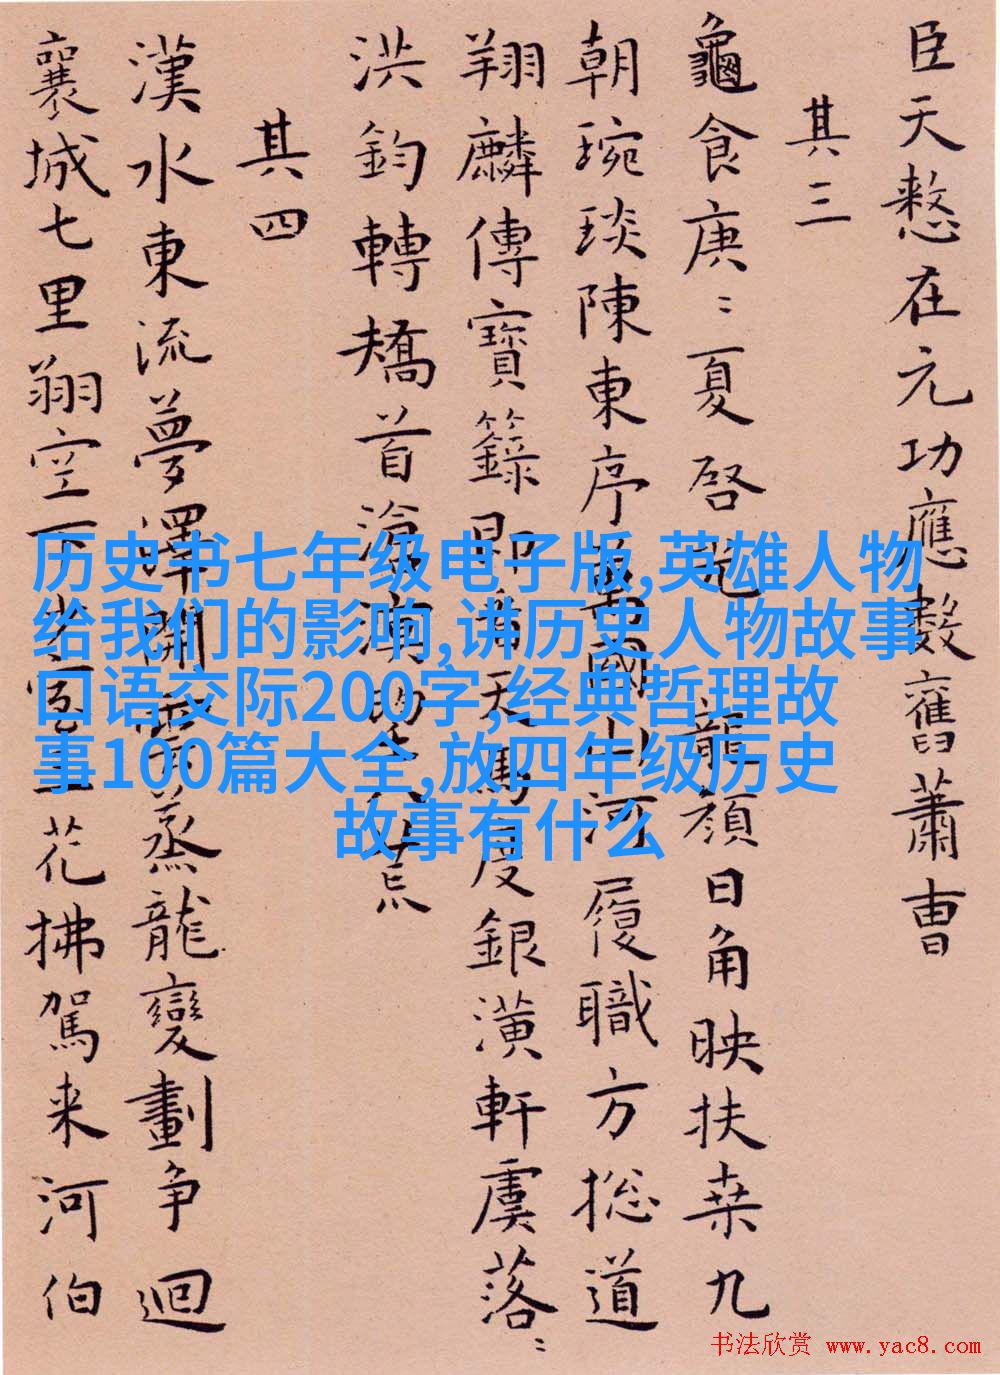 臣天憖在元功應數舊蕭曹
其三
龜食庚〻夏啓兆龍顏日角映扶桒九
朝琬琰陳東序萬國山河履職方揔道
翔麟傳寶籙即看天馬度銀潢軒虞落〻
洪鈞轉矯首滄溟八荒
其四
漢水東流夢澤開雲蒸龍變劃争迴
襄城七里翔空下花拂駕来河伯
历史书七年级电子版,英雄人物
给我们的影响,讲历史人物故事
口语交际200字,经典哲理故
事100篇大全,放四年级历史
故事有什么
书法欣赏 www.yac8.com